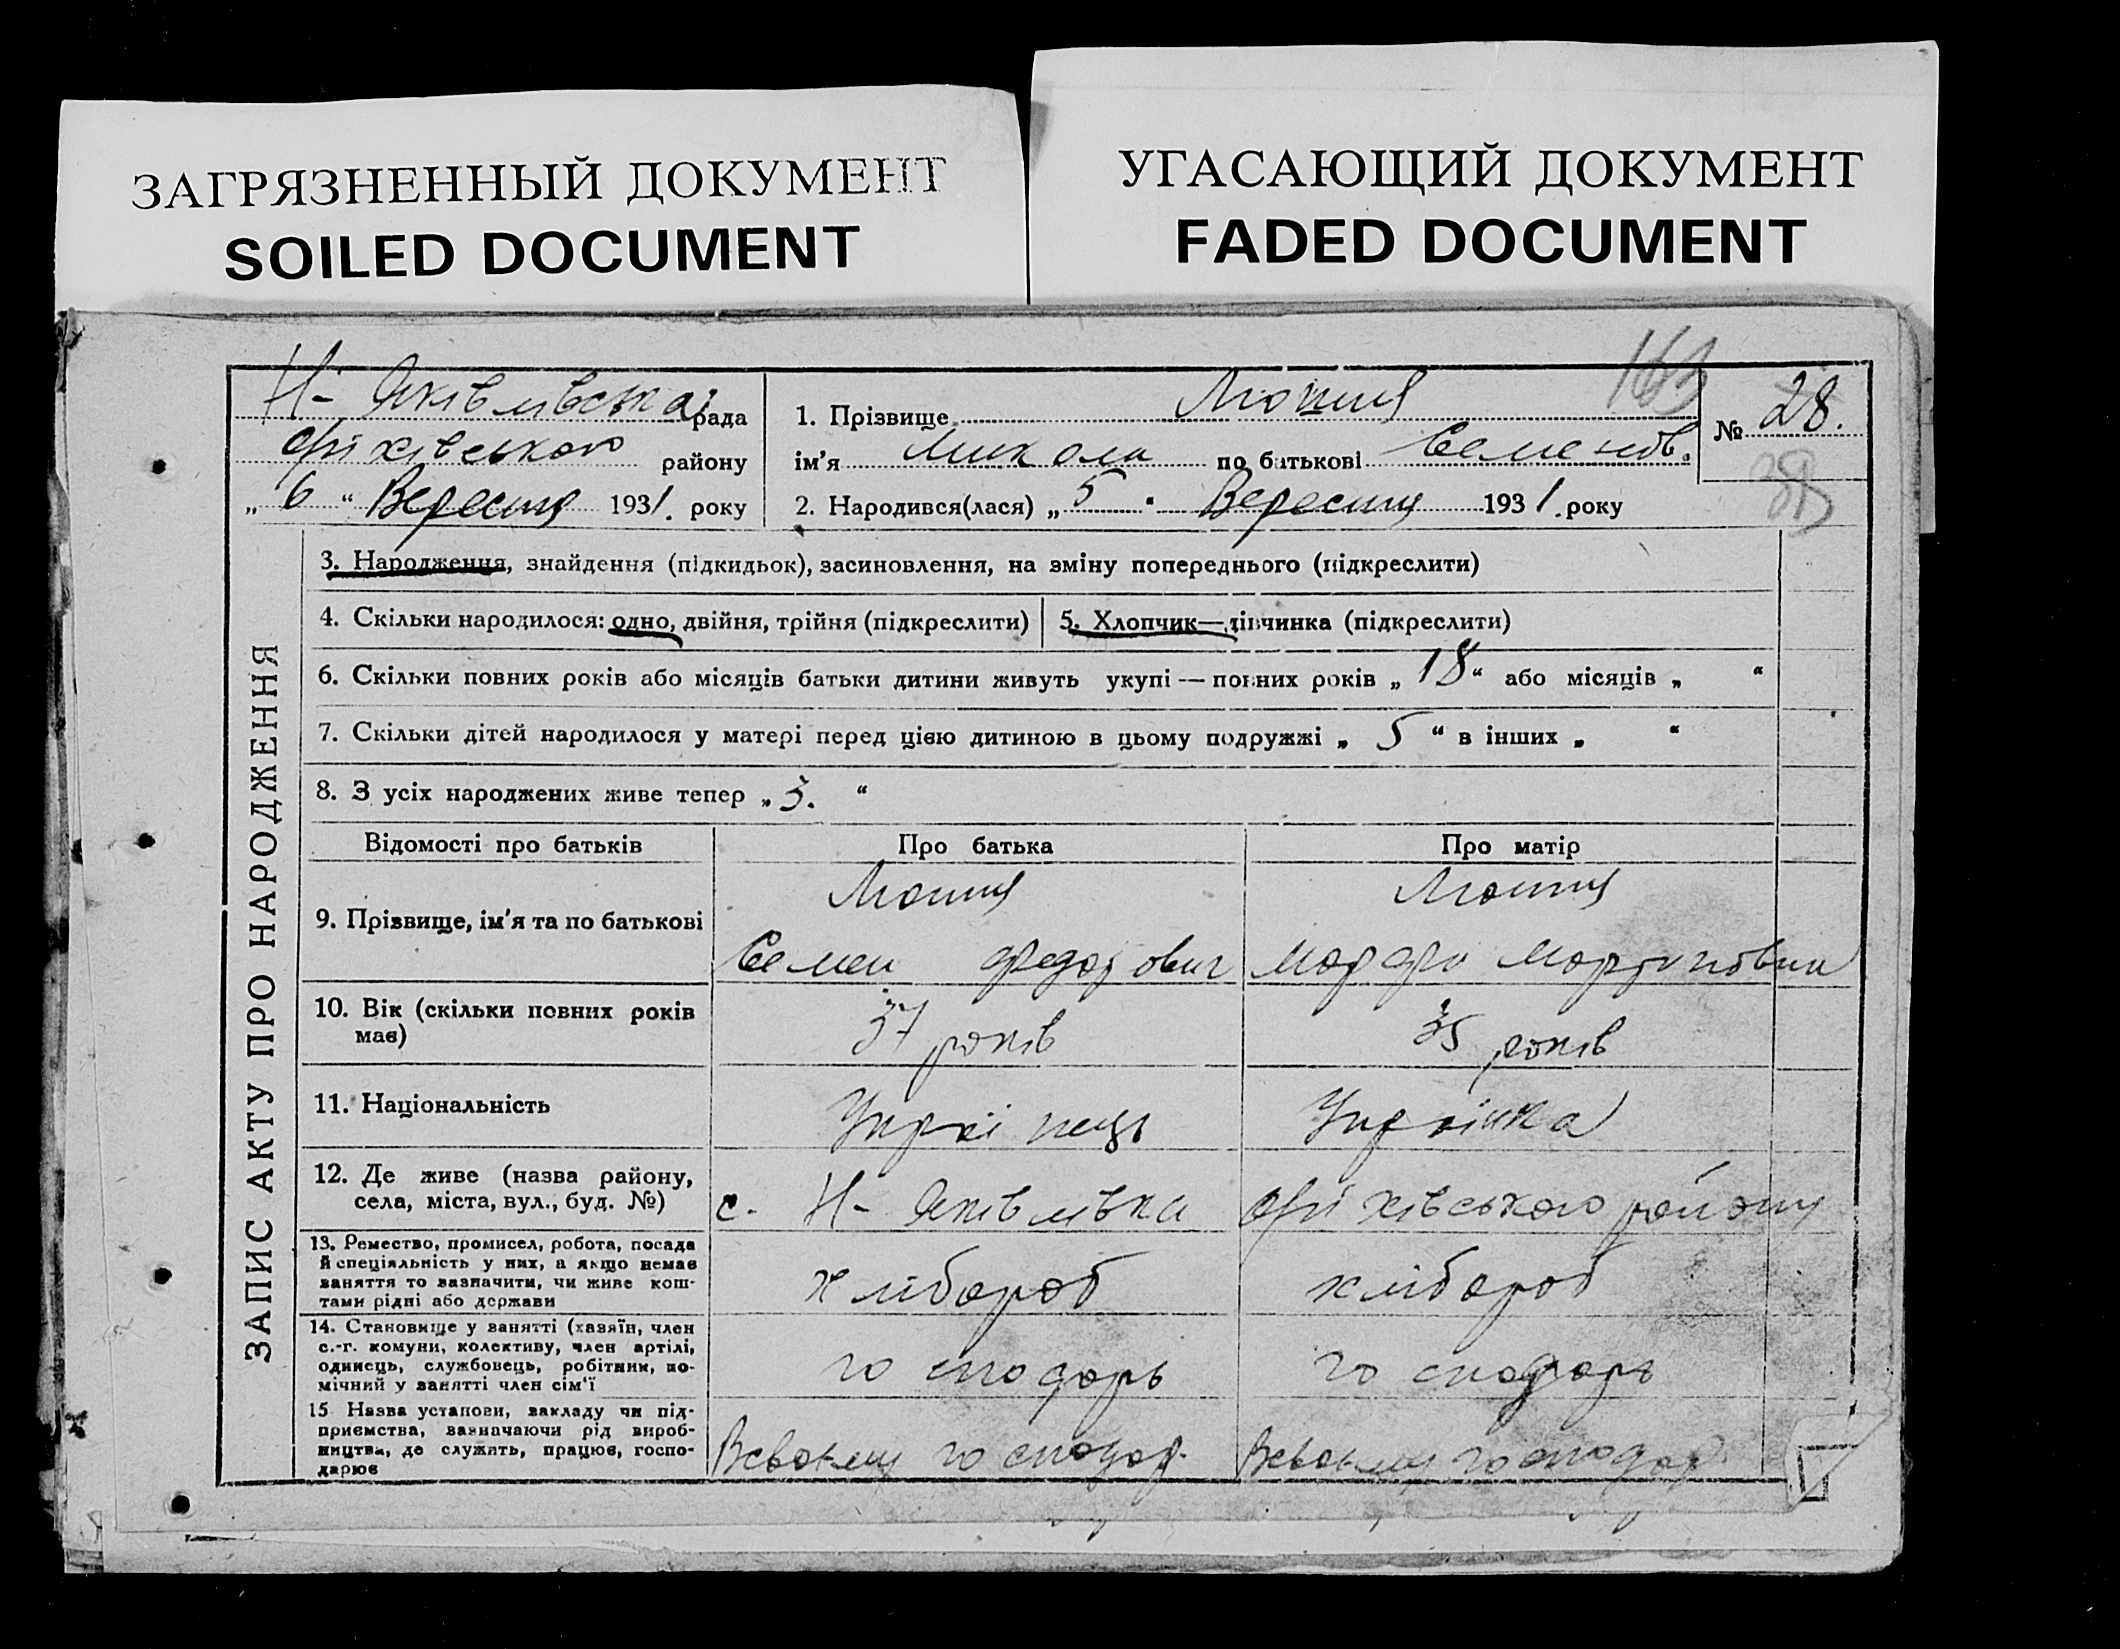 ЗАГРЯЗНЕННЫЙ ДОКУМЕНТ
SOILED DOCUMENT
УГАСАЮЩИЙ ДОКУМЕНТ
FADED DOCUMENT
163
Н-Яківлівська рада
Оріхівського району
„ 6 “ Вересня 1931. року
1. Прізвище
ім'я Микола по батькові Семенов.
2. Народився(лася) „ 5 “ Вересня 1931. року
№ 28.
ЗАПИС АКТУ ПРО НАРОДЖЕННЯ
3. Народження, знайдення (підкидьок), засиновлення, на зміну попереднього (підкреслити)
4. Скільки народилося: одно, двійня, трійня (підкреслити)
5. Хлопчик—дівчинка (підкреслити)
6. Скільки повних років або місяців батьки дитини живуть укупі — повних років „ 18 “ або місяців „ “
7. Скільки дітей народилося у матері перед цією дитиною в цьому подружжі „ 5 “ в інших „ “
8. З усіх народжених живе тепер „ 3. “
Відомості про батьків
Про батька
Про матір
9. Прізвище, ім'я та по батькові
Семен Федорович
Марфа Мартиновна
10. Вік (скільки повних років
має)
37 років
35 років
11. Національність
Украінець
Украінка
12. Де живе (назва району,
села, міста, вул., буд. №)
с. Н-Яківлівка Оріхівського району
13. Ремество, промисел, робота, посада
й спеціяльність у них, а якщо немає
заняття то зазначити, чи живе кош-
тами рідні або держави
хлібороб
хлібороб
14. Становище у занятті (хазяїн, член
с.-г. комуни, колективу, член артілі,
одинець, службовець, робітник, по-
мічний у занятті член сім'ї
господарь
господарь
15 Назва установи, закладу чи під-
приємства, зазначаючи рід вироб-
ництва, де служить, працює, госпо-
дарює
Всвоєму господар.
Всвоєму господар.